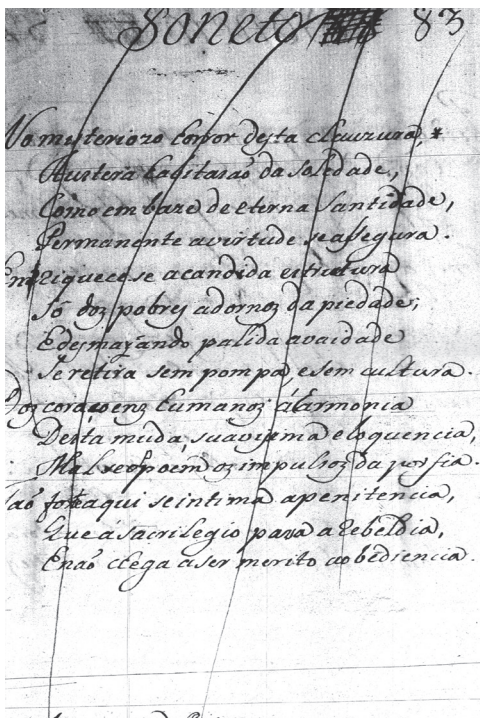 Soneto 83
No misteriozo horror desta clauzura, *
Austera habitasaõ da soledade,
Como em baze de eterna santidade,
Permanente a virtude se assegura.
Enriquece se a candida estrutura
Só doz pobres adornoz da piedade;
E desmayando palida a vaidade
Se retira sem pompa, e sem cultura.
Doz coraçoenz humanoz á harmonia
Desta muda, suavisima eloquencia,
Mal se opoem oz impulsoz da porfia.
Taõ forte aqui se intima a penitencia,
Que á sacrilegio pasa a rebeldia,
E naõ chega a ser merito a obediencia.